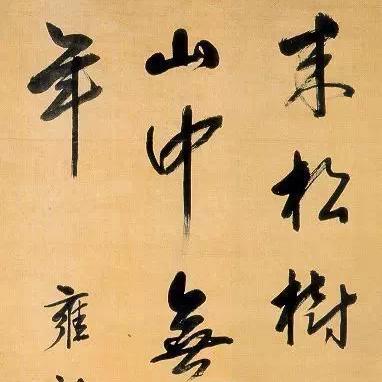 来松樹
山中無
年
雍